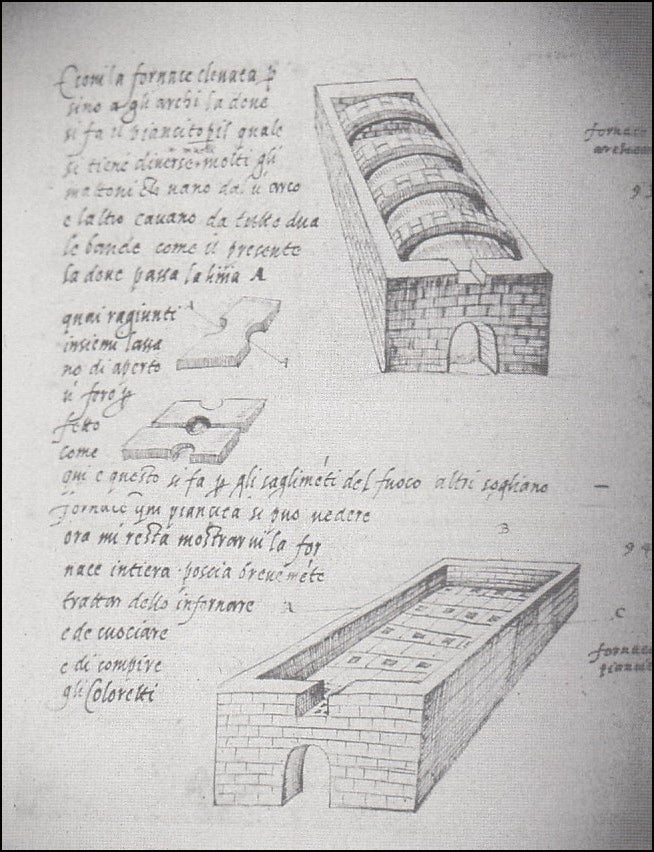 Ecovi la fornace elevata p
sino a gli archi la dove
si fa il pianeito pil quale
si tiene diverse molti gli
mattoni vano dal ũ arco
e laltro cavano da tutte dua
le bande come il presente
la dove passa la linia A
quai ragiunti
insiemi lassa
no di aperto
ũ foro
fatto
come
qui e questo si fa ꝑ gli saglimẽti del fuoco altri sogliano
fornace piancita si puo vedere
ora mi resta mostrarvi la for
nace intiera poscia brevemẽte
trattar dello infornare
e de cuociare
e di compire
gli Coloretti
A
A
fornace
93
B
94
A
C
fornace